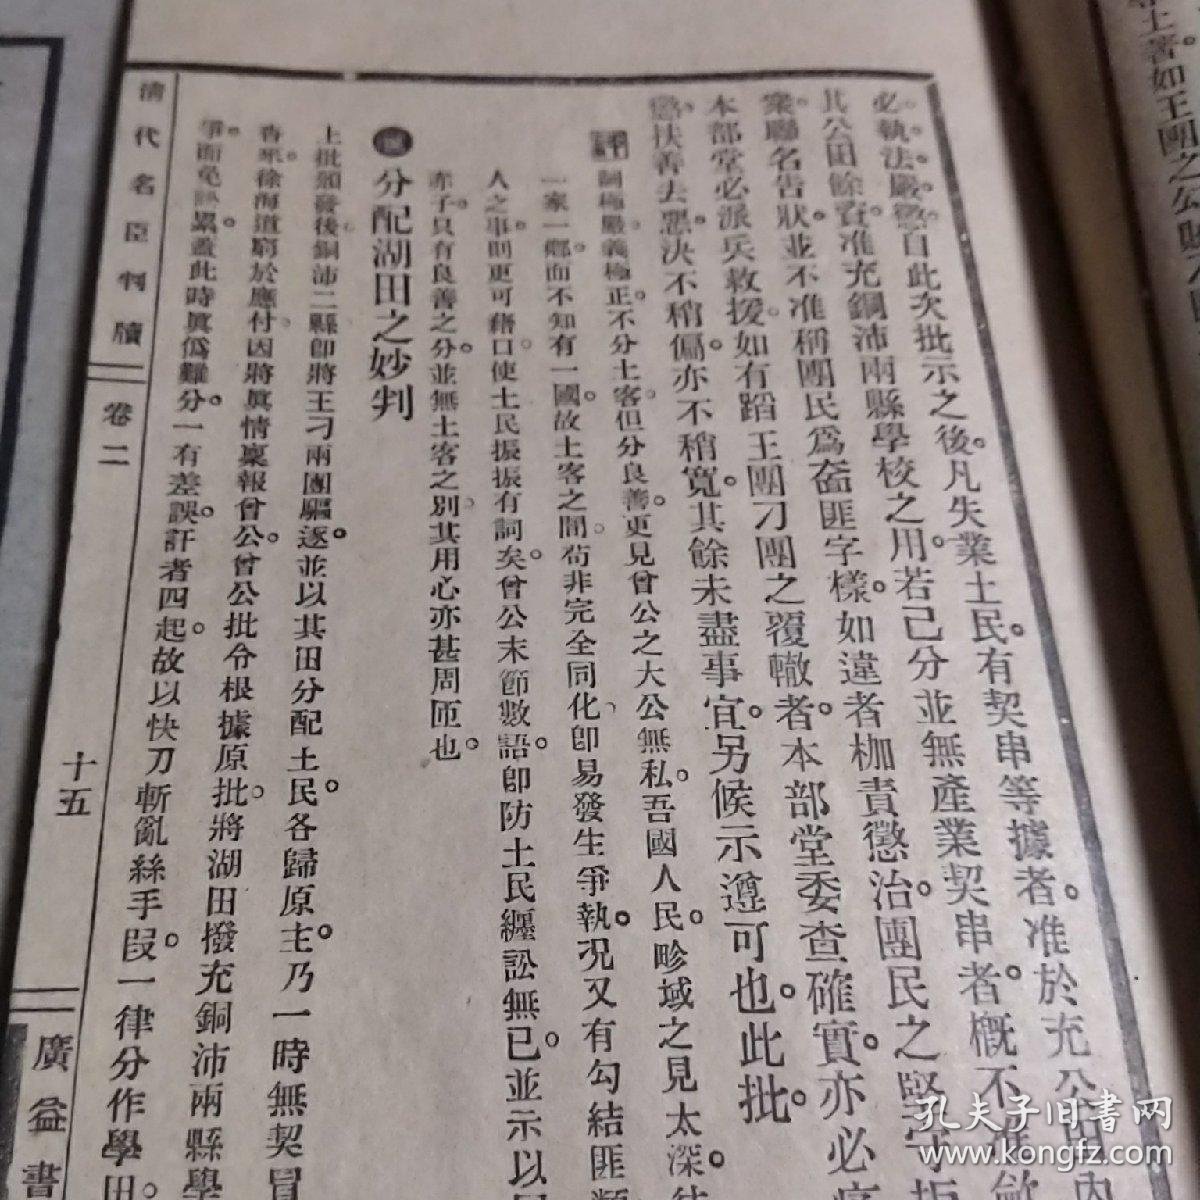 必執法嚴懲。自此次批示之後。凡失業土民。有契串等據者。准於充公田內
其公田餘資。准充銅沛兩縣學校之用。若己分並無產業契串者。概不准
衆聯名告狀。並不准稱團民爲匪字樣。如違者枷責懲治。團民之堅守
本部堂必派兵救援。如有蹈王團刁團之覆轍者。本部堂委查確實。亦必
懲。扶善去惡。決不稍偏。亦不稍寬。其餘未盡事宜。另候示遵可也。此批。
評 詞極嚴。義極正。不分土客。但分良善。更見曾公之大公無私。吾國人民。畛域之見太深。
一家一鄉。而不知有一國。故土客之間。苟非完全同化。卽易發生爭執。況又有勾結匪類
人之事。則更可藉口。使土民振振有詞矣。曾公末節數語。卽防土民纏訟無已。並示以
赤子。只有良善之分。並無土客之別。其用心亦甚周匝也。
分配湖田之妙判
上批頒發後。銅沛二縣卽將王刁兩團驅逐。並以其田分配土民。各歸原主。乃一時無契冒
沓來。徐海道窮於應付。因將眞情稟報曾公。曾公批令根據原批。將湖田撥充銅沛兩縣學
爭。而免訟累。蓋此時眞僞難分。一有差誤。訐者四起。故以快刀斬亂絲手段。一律分作學田。
清代名臣判牘 卷二 十五 廣益書
土著如王團之公
孔夫子旧书网
www.kongfz.com